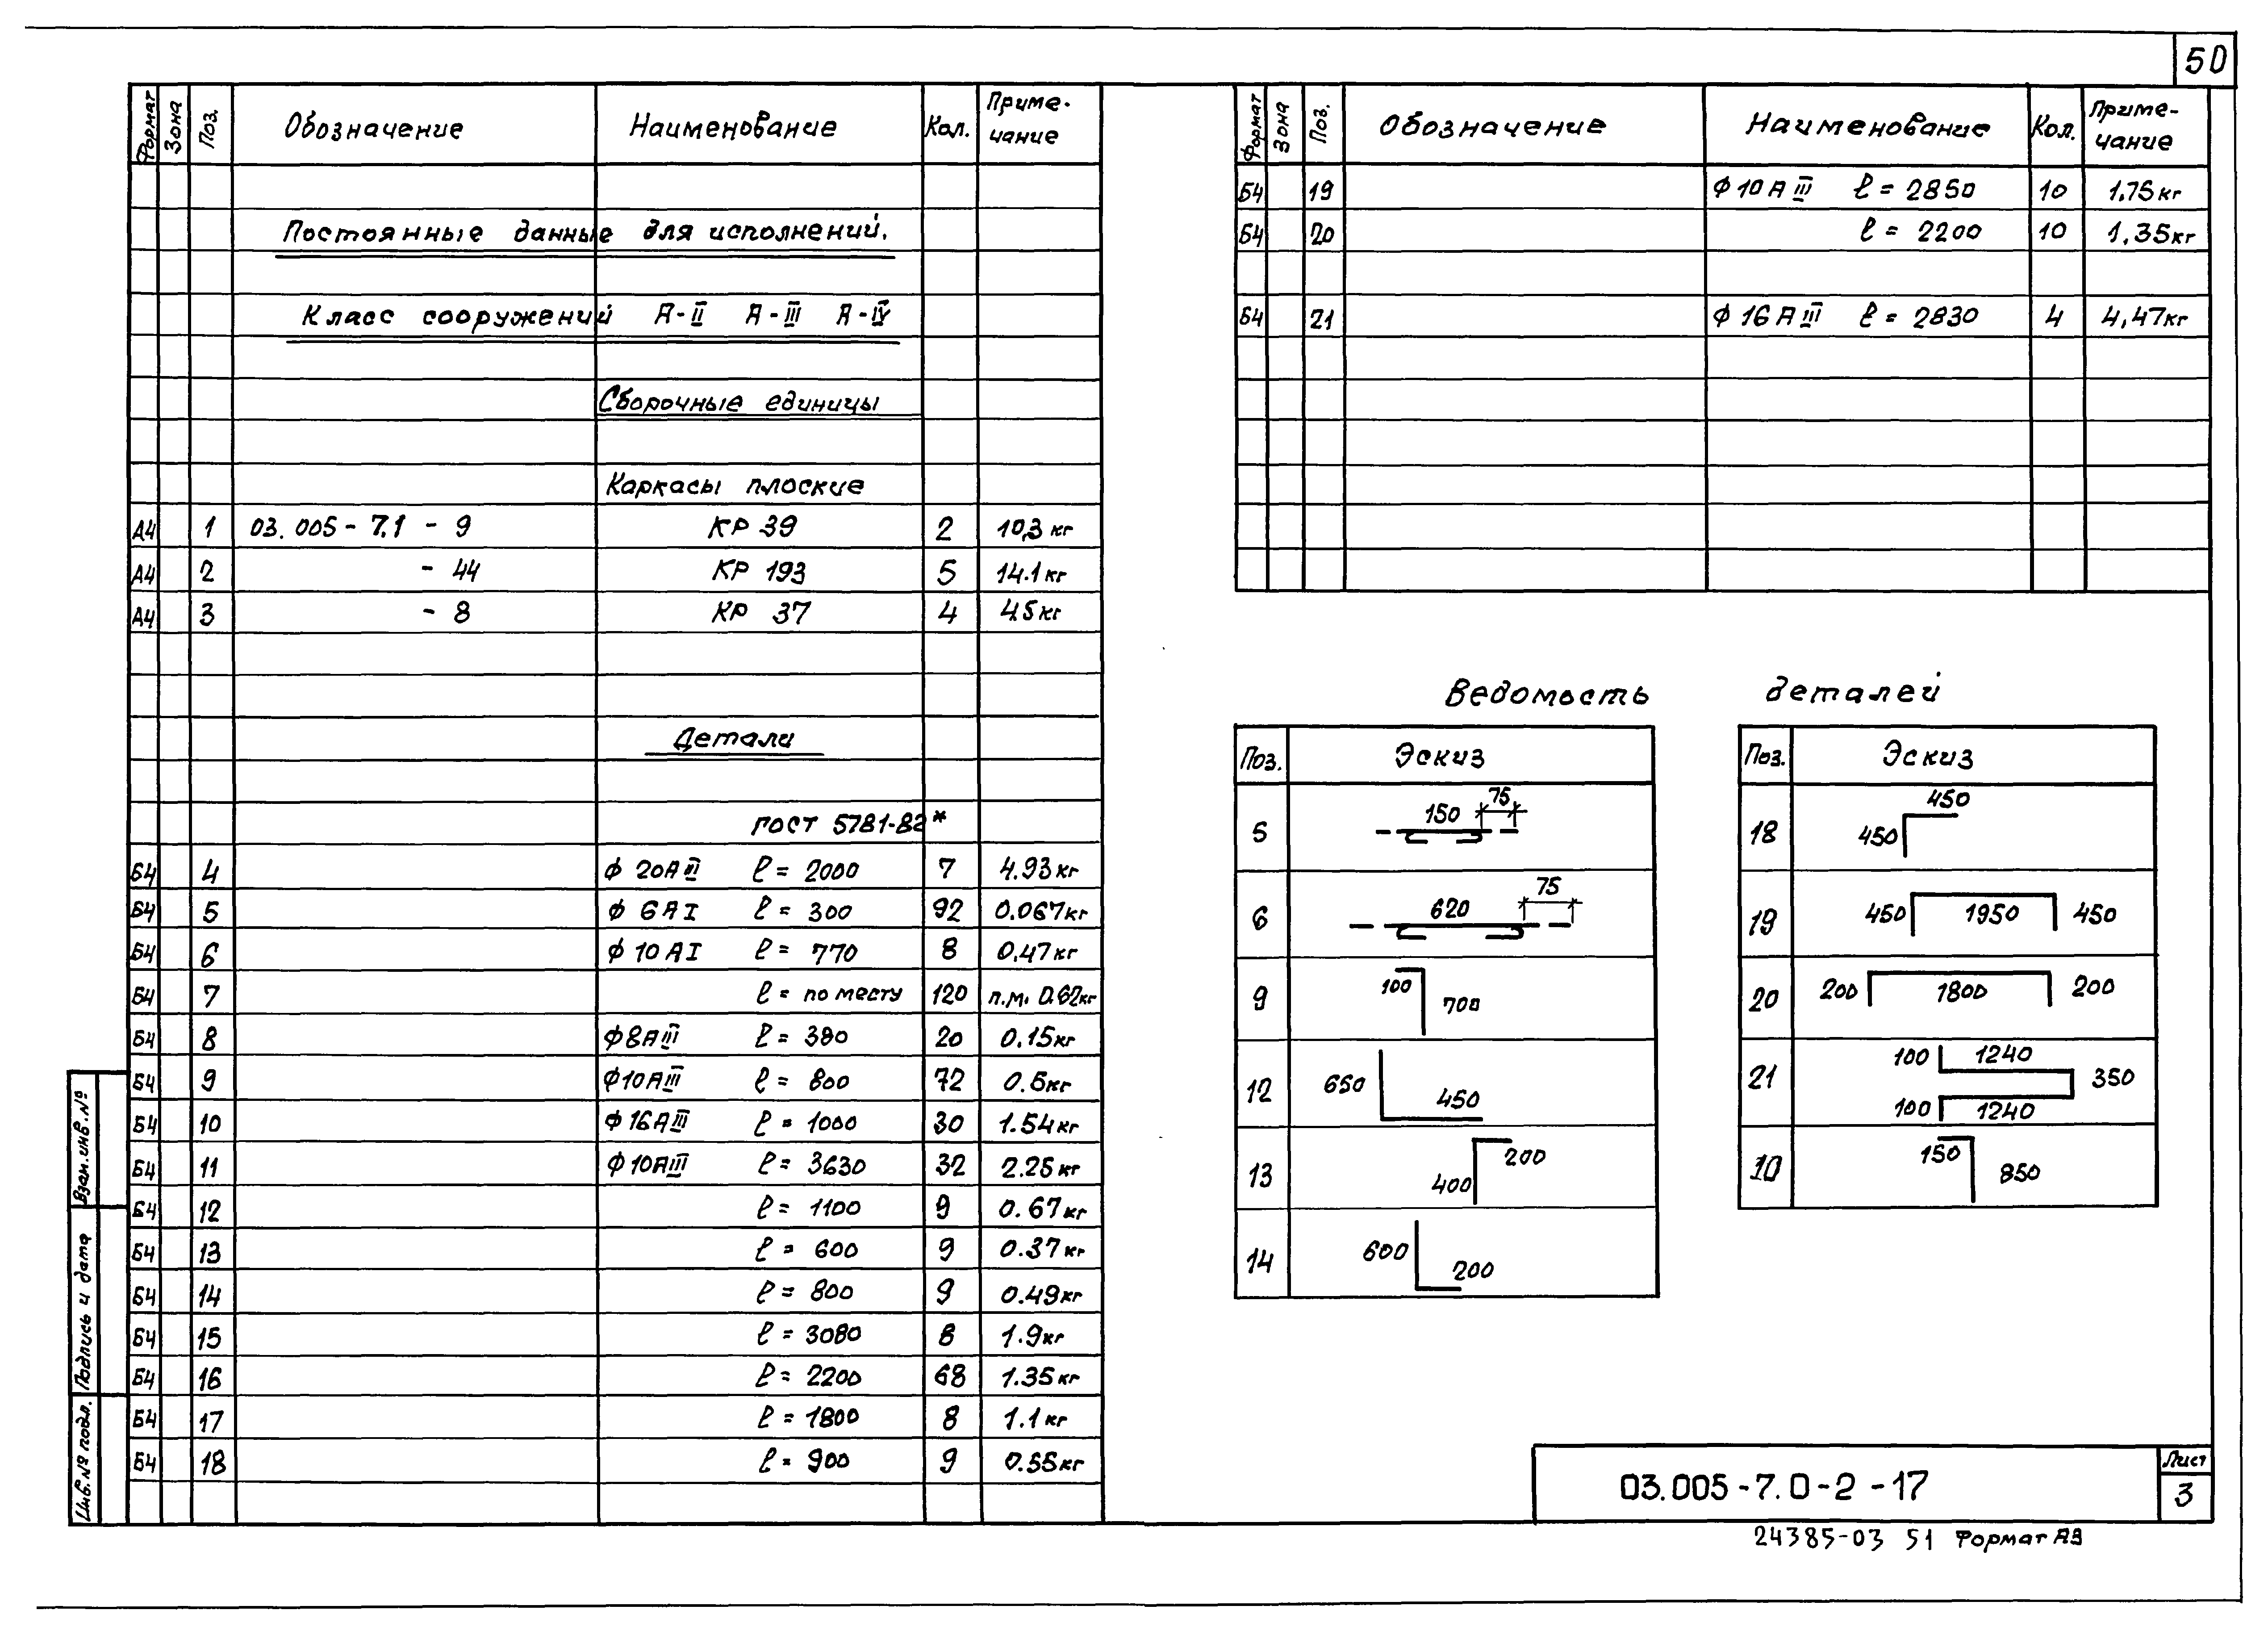 50
Формат Зона Поз. Обозначение Наименование Кол. Приме-чание
Постоянные данные для исполнений.
Класс сооружений А-II А-III А-IV
Сборочные единицы
Каркасы плоские
А4 1 03.005-7.1 - 9 КР 39 2 10,3 кг
А4 2 - 44 КР 193 5 14.1 кг
А4 3 - 8 КР 37 4 4.5 кг
Детали
ГОСТ 5781-82*
Б4 4 ф 20 А III l = 2000 7 4.93 кг
Б4 5 ф 6 А I l = 300 92 0.067 кг
Б4 6 ф 10 А I l = 770 8 0.47 кг
Б4 7 l = по месту 120 п.м. 0.62 кг
Б4 8 ф 8 А III l = 380 20 0.15 кг
Б4 9 ф 10 А III l = 800 72 0.5 кг
Б4 10 ф 16 А III l = 1000 30 1.54 кг
Б4 11 ф 10 А III l = 3630 32 2.25 кг
Б4 12 l = 1100 9 0.67 кг
Б4 13 l = 600 9 0.37 кг
Б4 14 l = 800 9 0.49 кг
Б4 15 l = 3080 8 1.9 кг
Б4 16 l = 2200 68 1.35 кг
Б4 17 l = 1800 8 1.1 кг
Б4 18 l = 900 9 0.55 кг
Формат Зона Поз. Обозначение Наименование Кол. Приме-чание
Б4 19 ф 10 А III l = 2850 10 1.75 кг
Б4 20 l = 2200 10 1.35 кг
Б4 21 ф 16 А III l = 2830 4 4,47 кг
Ведомость деталей
Поз. Эскиз
5 150 75
6 620 75
9 100 700
12 650 450
13 400 200
14 600 200
Поз. Эскиз
18 450 450
19 450 1950 450
20 200 1800 200
21 100 1240 350 100 1240
10 150 850
Взам.инв.№
Подпись и дата
Инв.№ подл.
03.005-7.0-2-17
Лист
3
24385-03 51 Формат А3